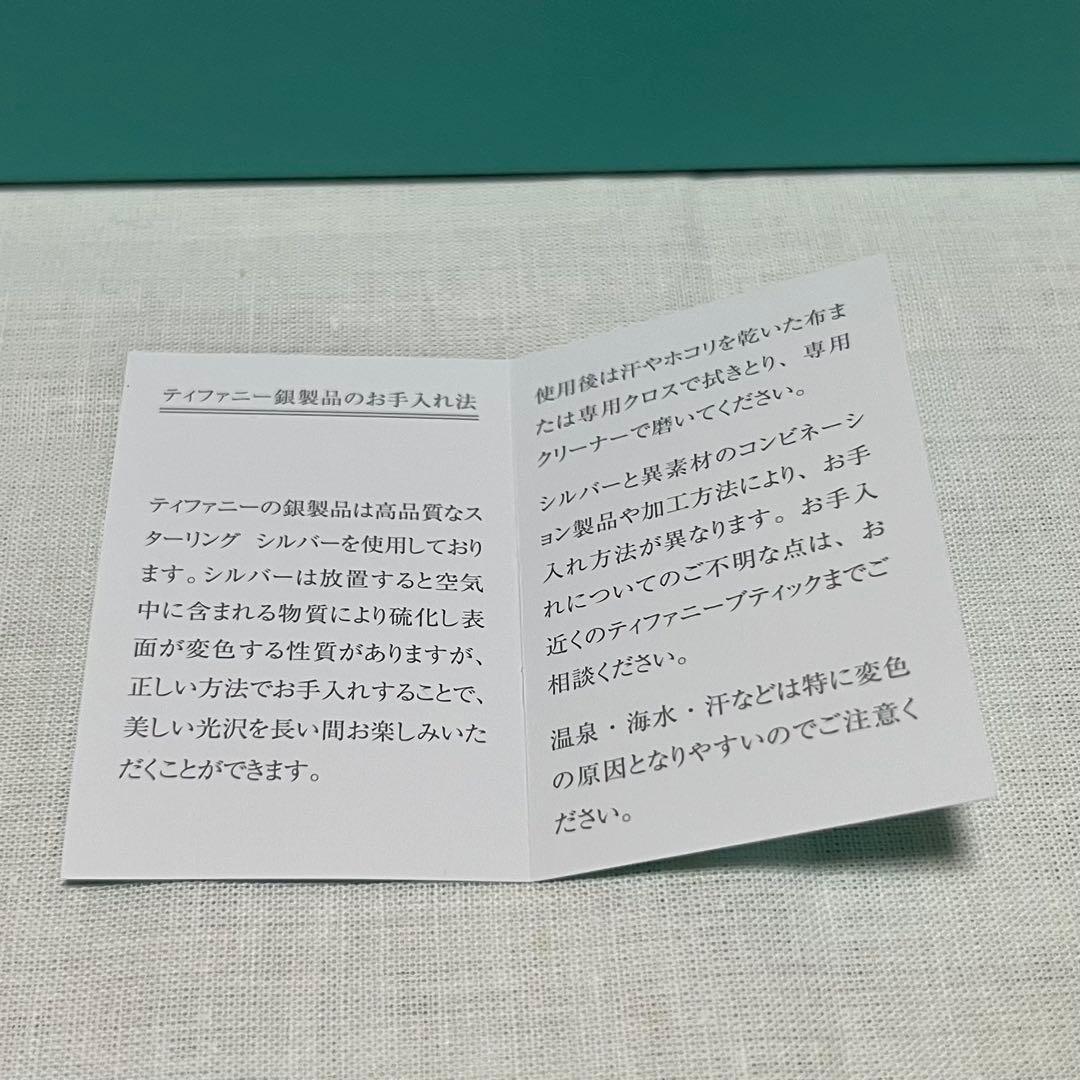 ティファニー銀製品のお手入れ法
ティファニーの銀製品は高品質なス
ターリング シルバーを使用しており
ます。シルバーは放置すると空気
中に含まれる物質により硫化し表
面が変色する性質がありますが、
正しい方法でお手入れすることで、
美しい光沢を長い間お楽しみいた
だくことができます。
使用後は汗やホコリを乾いた布ま
たは専用クロスで拭きとり、専用
クリーナーで磨いてください。
シルバーと異素材のコンビネーシ
ョン製品や加工方法により、お手
入れ方法が異なります。お手入
れについてのご不明な点は、お
近くのティファニーブティックまでご
相談ください。
温泉・海水・汗などは特に変色
の原因となりやすいのでご注意く
ださい。